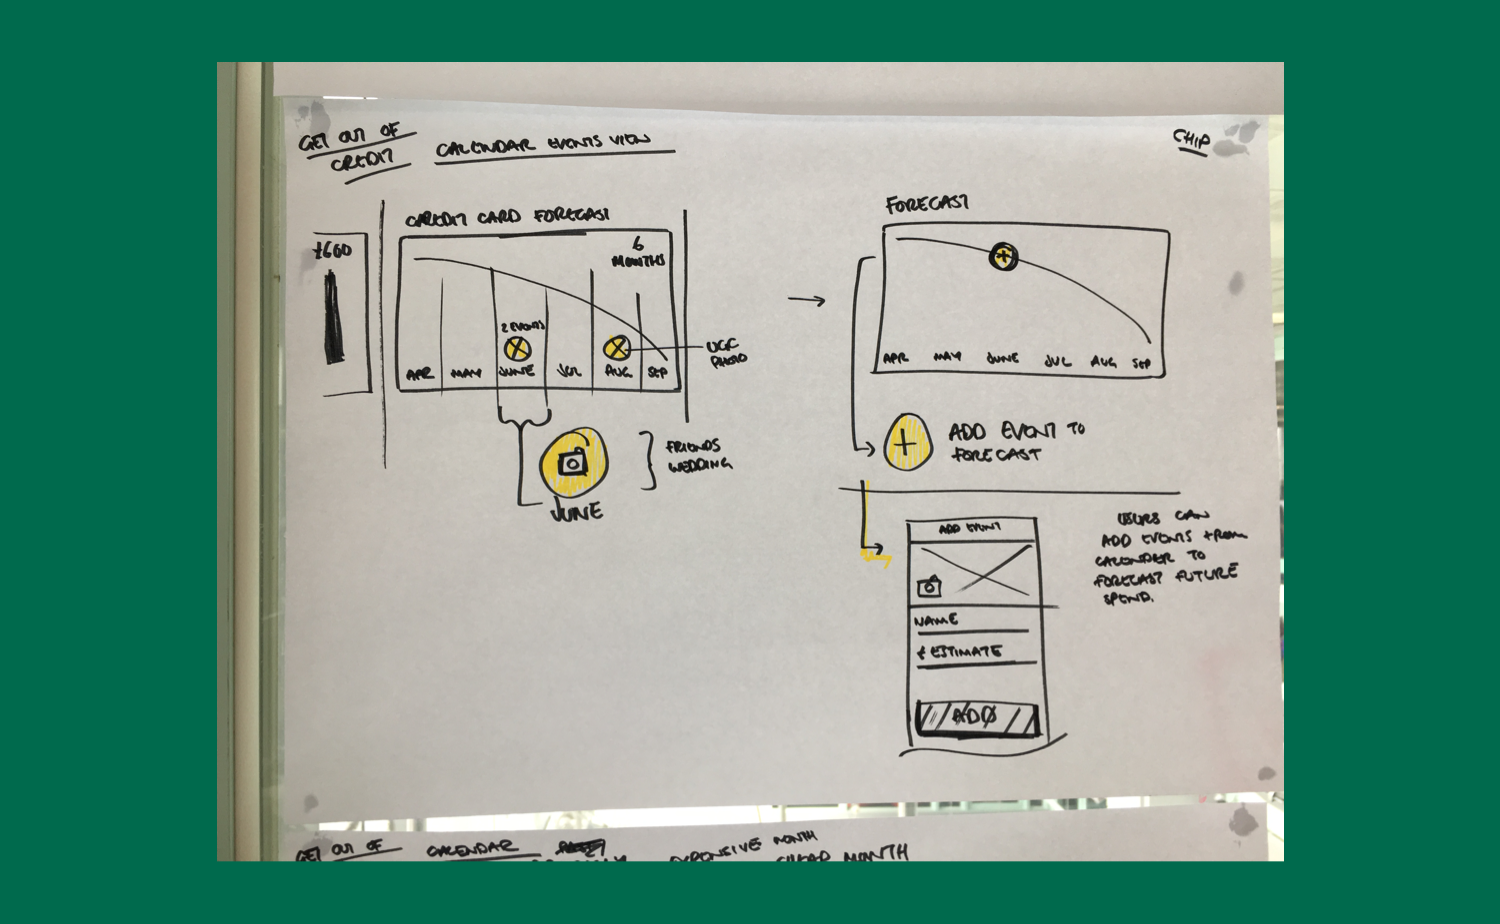 GET OUT OF
CREDIT
CALENDAR EVENTS VIEW
CHIP
£600
CREDIT CARD FORECAST
6
MONTHS
2 EVENTS
APR MAY JUNE JUL AUG SEP
UGC
PHOTO
FRIENDS
WEDDING
JUNE
FORECAST
APR MAY JUNE JUL AUG SEP
ADD EVENT TO
FORECAST
ADD EVENT
NAME
£ ESTIMATE
ADD
USERS CAN
ADD EVENTS FROM
CALENDER TO
FORECAST FUTURE
SPEND.
GET OUT OF
CALENDAR
EXPENSIVE MONTH
CHEAP MONTH